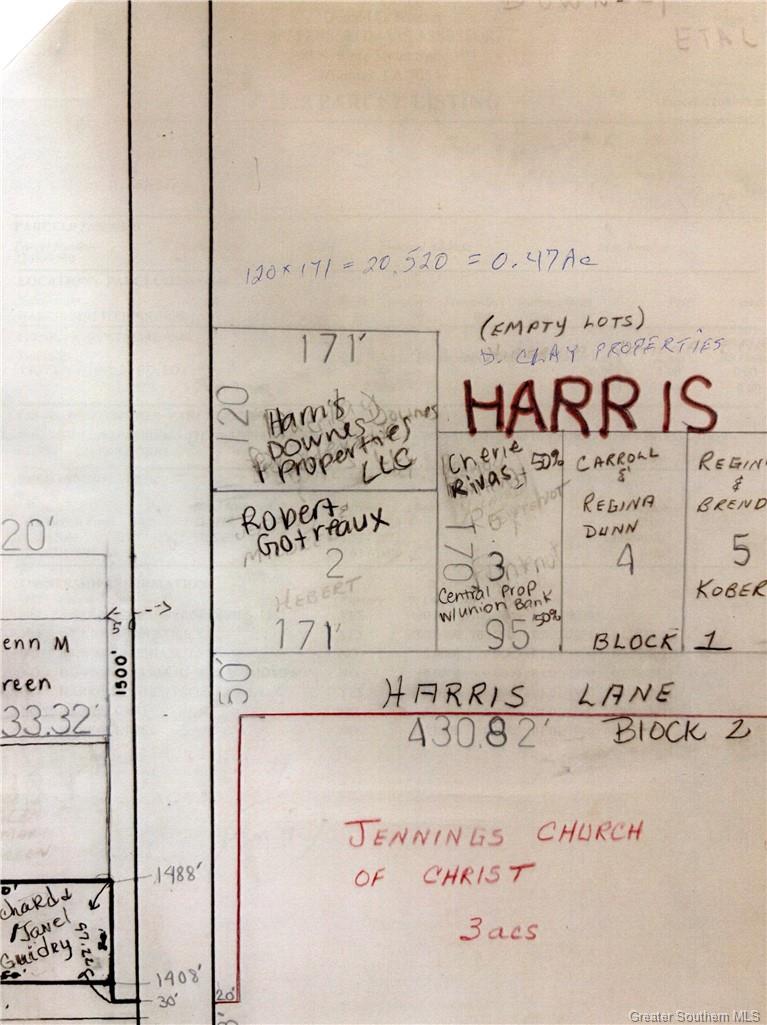 ETAL
120 x 171 = 20,520 = 0.47Ac
(EMPTY LOTS)
D. CLAY PROPERTIES
HARRIS
171'
120
Harris
Downes
+ Properties
LLC
Robert
Gotreaux
2
HEBERT
171'
Cherie 50%
Rivas +
170
3
Central Prop
w/union Bank
50%
95
CARROLL
&
REGINA
DUNN
4
REGIN
&
BREND
5
KOBER
BLOCK 1
20'
5
1500'
enn M
reen
33.32'
50'
HARRIS LANE
430.82'
BLOCK 2
JENNINGS CHURCH
OF CHRIST
3acs
1488'
chard &
/Janel
Guidry
1408'
30'
20'
Greater Southern MLS